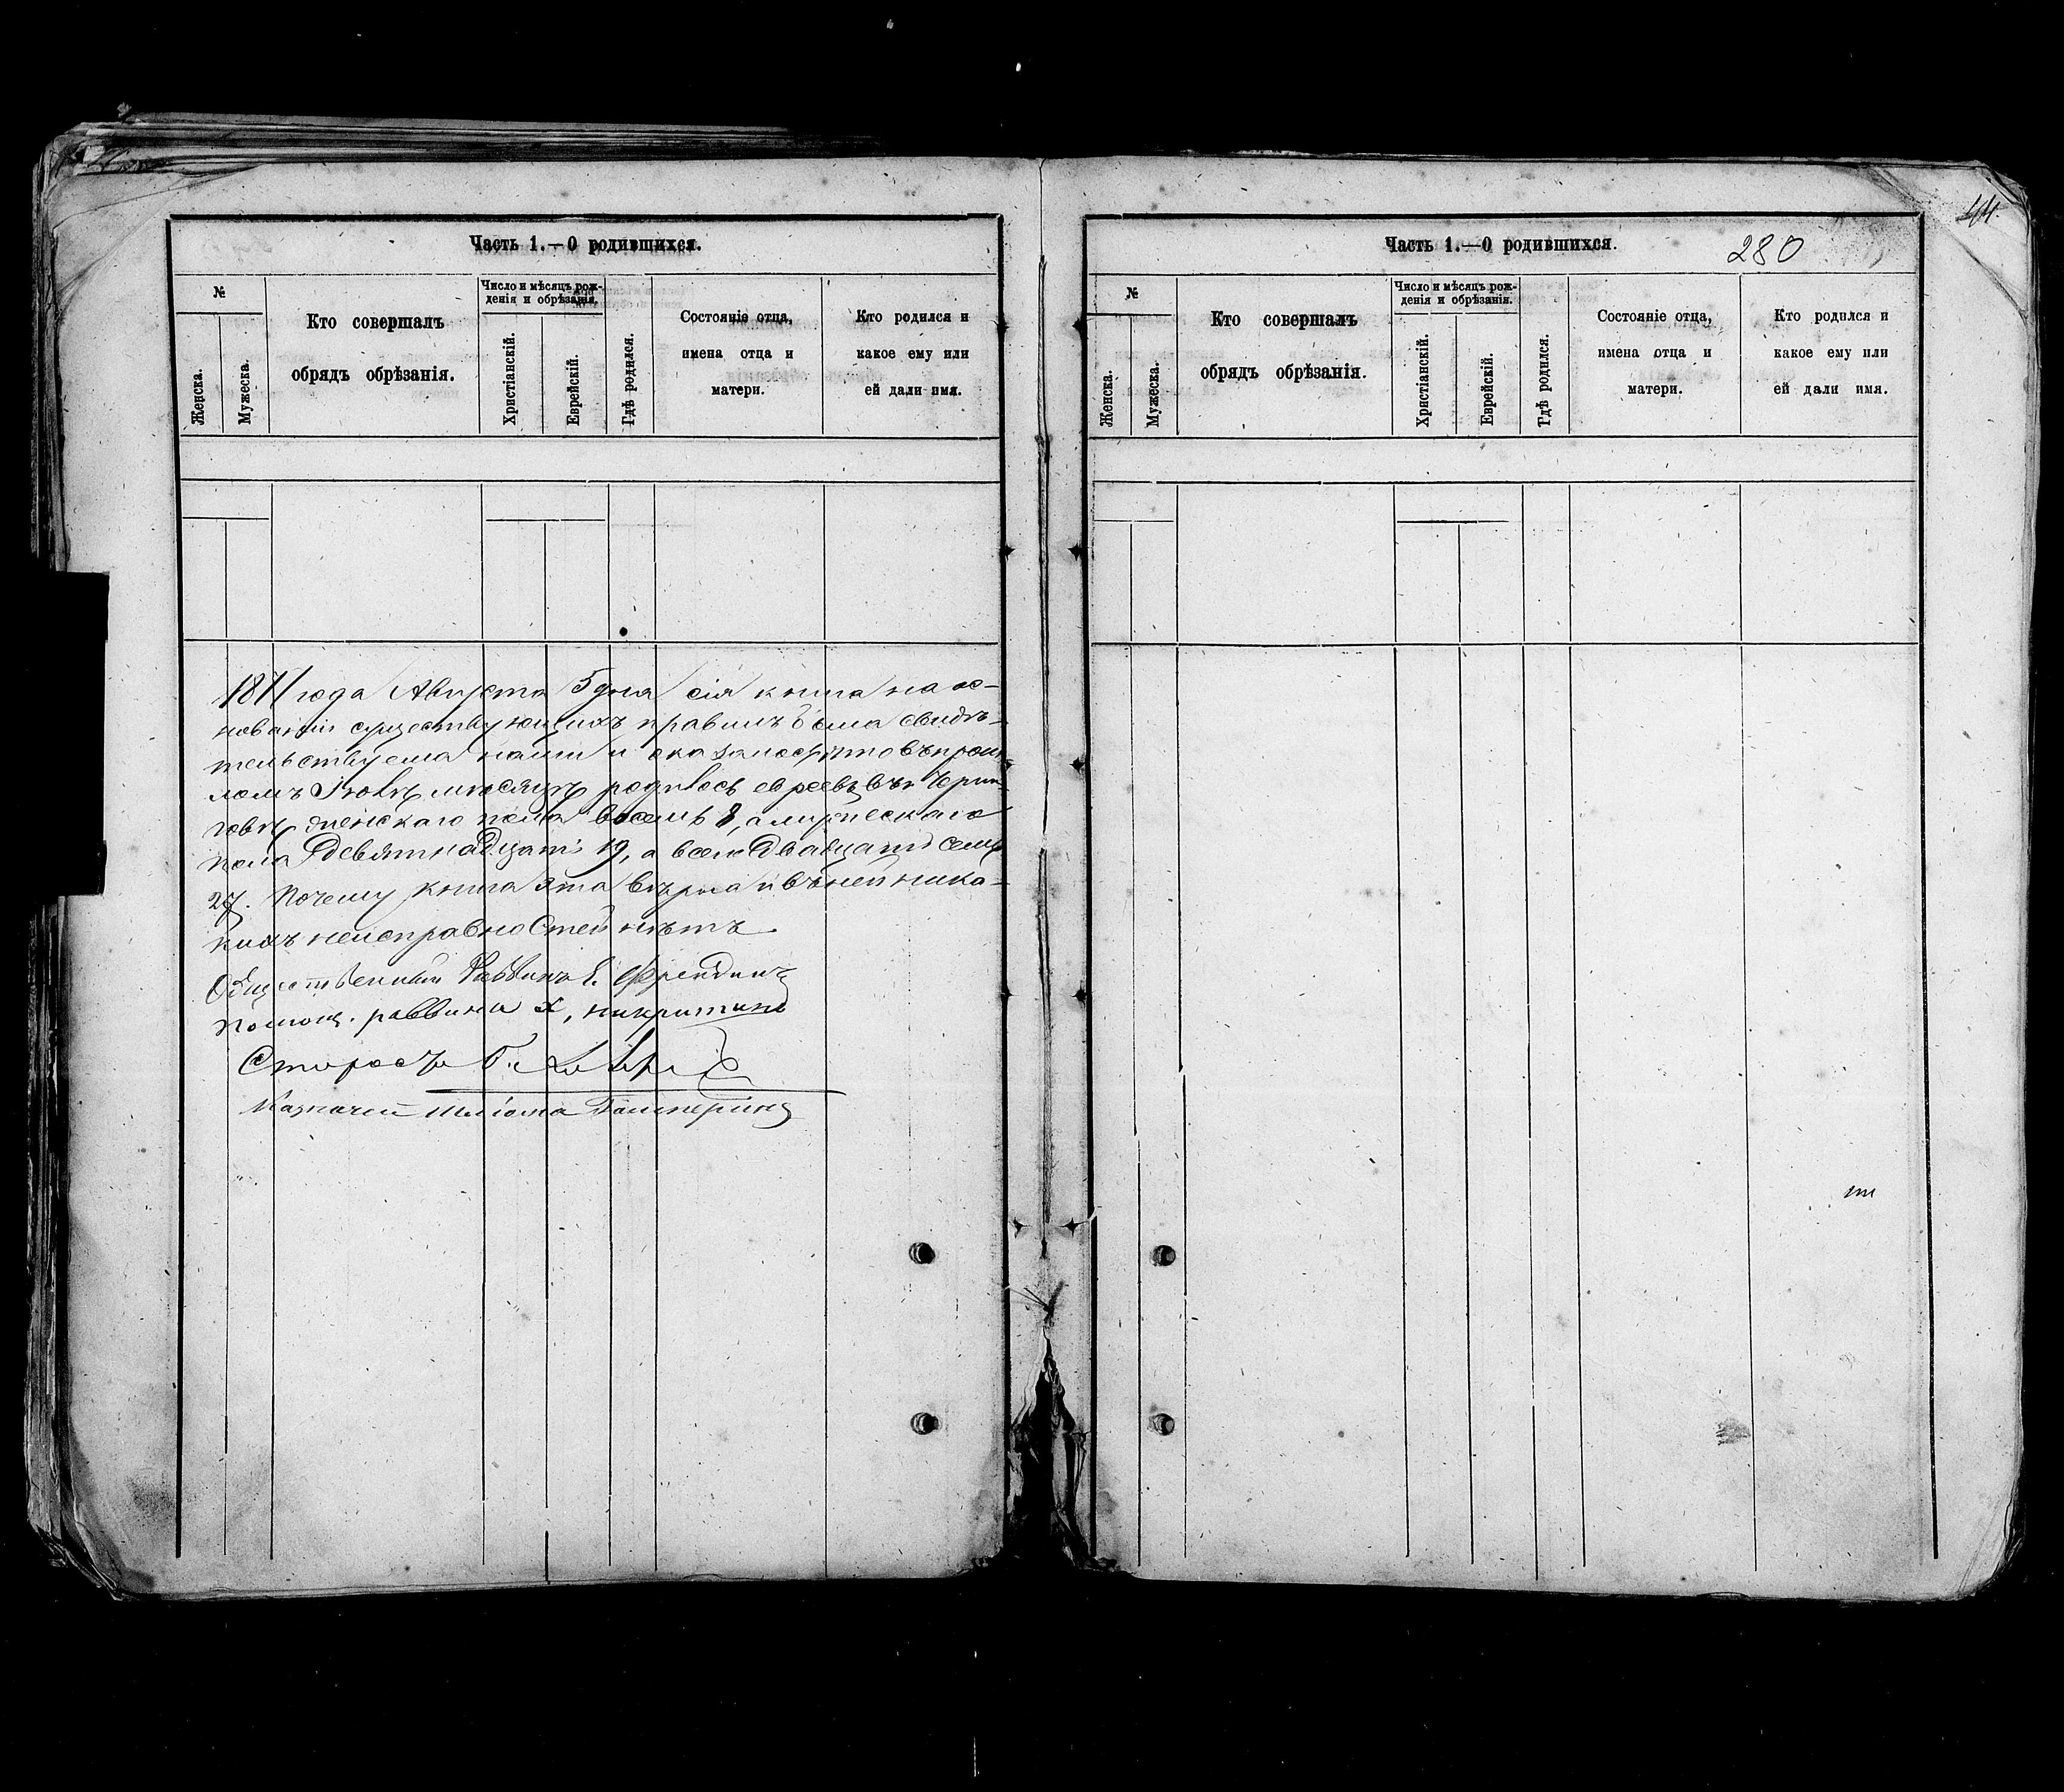 Часть 1.—О родившихся.
№
Женска.
Мужеска.
Кто совершалъ
обрядъ обрѣзанія.
Число и мѣсяцъ рож-
денія и обрѣзанія.
Христіанскій.
Еврейскій.
Гдѣ родился.
Состояніе отца,
имена отца и
матери.
Кто родился и
какое ему или
ей дали имя.
года Августа 5 дня сія книга на ос-
нованіи существующихъ правилъ была свидѣ-
тельствуема нами и оказалось что въ прош-
ломъ Іюлѣ мѣсяцѣ родилось евреевъ въ г. Черни-
говѣ женскаго пола восемь 8, а мужескаго
пола девятнадцать 19, а всего двадцать семь
27. Почему книга эта вѣрна и въ ней ника-
кихъ неисправностей нѣтъ
Общественный Раввинъ
Помощ. раввина Х, Никритинъ
Староста
Казначей Шліома Гальперинъ
44.
Часть 1.—О родившихся.
280
№
Женска.
Мужеска.
Кто совершалъ
обрядъ обрѣзанія.
Число и мѣсяцъ рож-
денія и обрѣзанія.
Христіанскій.
Еврейскій.
Гдѣ родился.
Состояніе отца,
имена отца и
матери.
Кто родился и
какое ему или
ей дали имя.